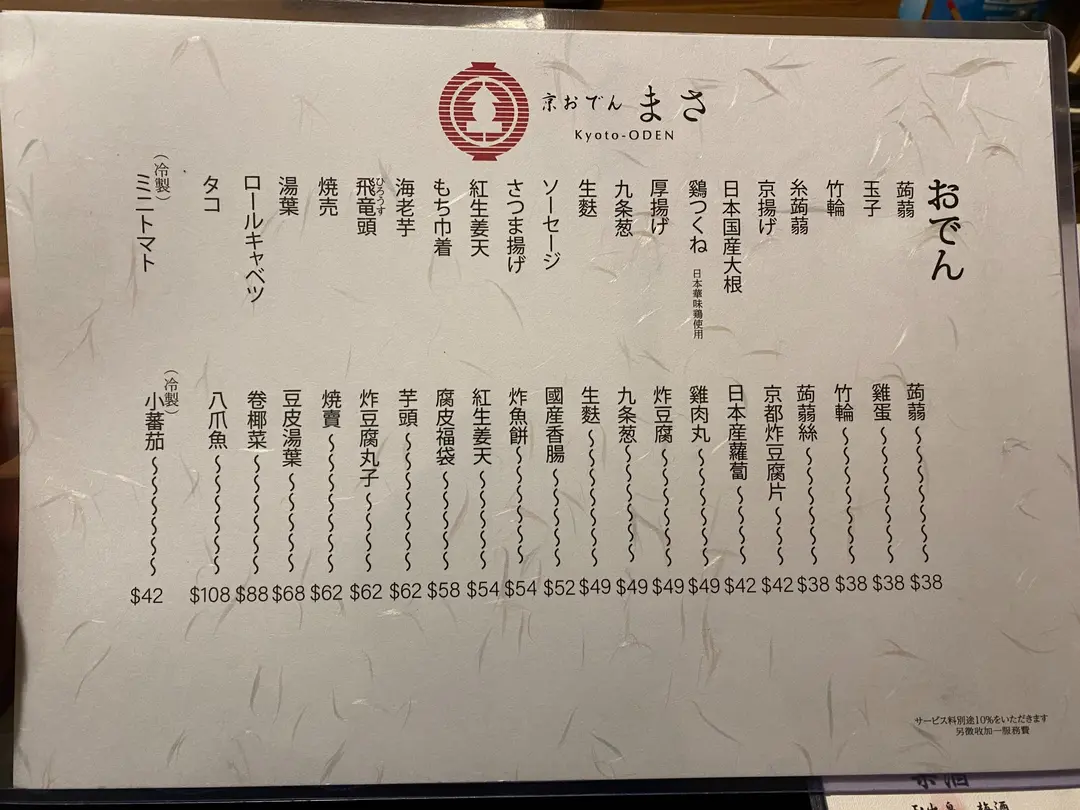 京おでん まさ
Kyoto-ODEN
おでん
蒟蒻 蒟蒻 $38
玉子 雞蛋 $38
竹輪 竹輪 $38
糸蒟蒻 蒟蒻絲 $38
京揚げ 京都炸豆腐片 $42
日本国産大根 日本産蘿蔔 $42
鶏つくね 日本華味鶏使用 雞肉丸 $49
厚揚げ 炸豆腐 $49
九条葱 九条葱 $49
生麩 生麩 $49
ソーセージ 國産香腸 $52
さつま揚げ 炸魚餅 $54
紅生姜天 紅生姜天 $54
もち巾着 腐皮福袋 $58
海老芋 芋頭 $62
飛竜頭 ひろうす 炸豆腐丸子 $62
焼売 燒賣 $62
湯葉 豆皮湯葉 $68
ロールキャベツ 卷椰菜 $88
タコ 八爪魚 $108
(冷製) ミニトマト (冷製) 小蕃茄 $42
サービス料別途10%をいただきます
另徴收加一服務費
梅酒